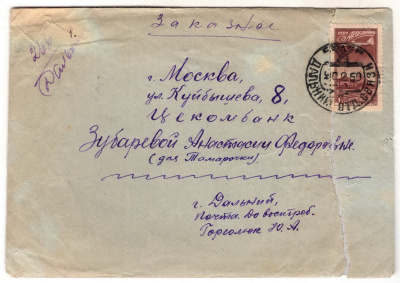 Заказное
1.
г. Москва,
ул. Куйбышева, 8,
Цекомбанк
Зубаревой Анастасии Федоровне
(для Тамарочки)
г. Дальний,
Почта. До востреб.
Ю. А.